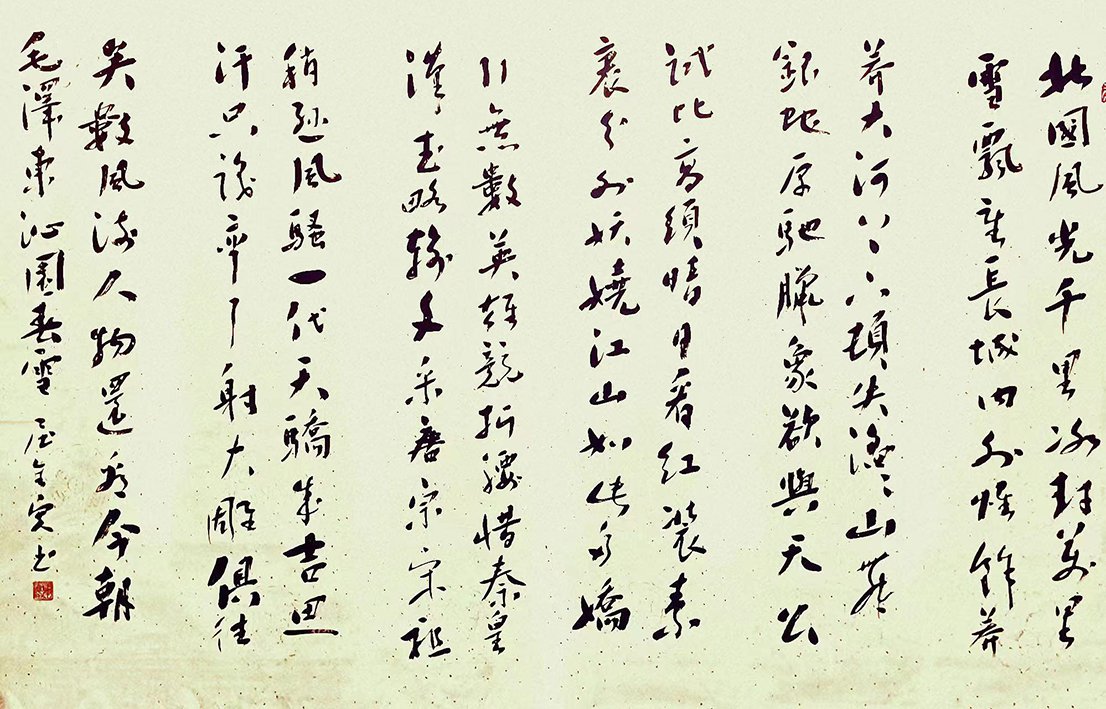 北國風光千里冰封萬里
雪飄望長城內外惟餘莽
莽大河上下頓失滔〻山舞
銀蛇原馳臘象欲與天公
試比高須晴日看紅裝素
裹分外妖嬈江山如此多嬌
引無數英雄競折腰惜秦皇
漢武略輸文采唐宗宋祖
稍遜風騷一代天驕成吉思
汗只識彎弓射大雕俱往
矣數風流人物還看今朝
毛澤東沁園春雪 書